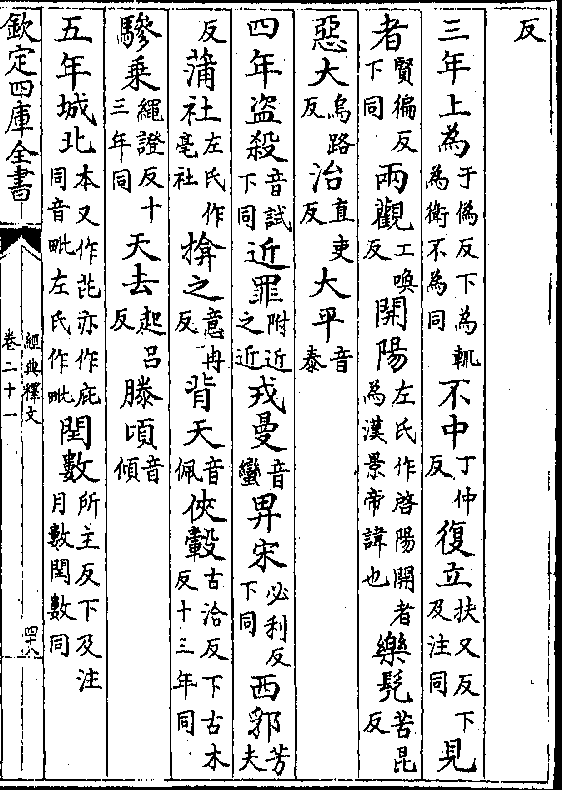 反
三年上為于偽反下為輒為衛不為同不中丁仲反復立扶又反下及注同見
者賢徧反下同兩觀工喚反開陽左氏作啓陽開者為漢景帝諱也樂髠苦昆反
惡大烏路反治直吏反大平音泰
四年盗殺音試下同近罪附近之近戎曼音蠻畀宋必利反下同西郛芳夫
反蒲社左氏作亳社揜之意冉反背天音佩俠轂古洽反下古木反十三年同
驂乗繩證反十三年同天去起吕反滕頃音傾
五年城北本又作芘亦作庇同音毗左氏作毗閏數所主反下及注月數閏數同
欽定四庫全書
經典釋文
卷二十一
四十八